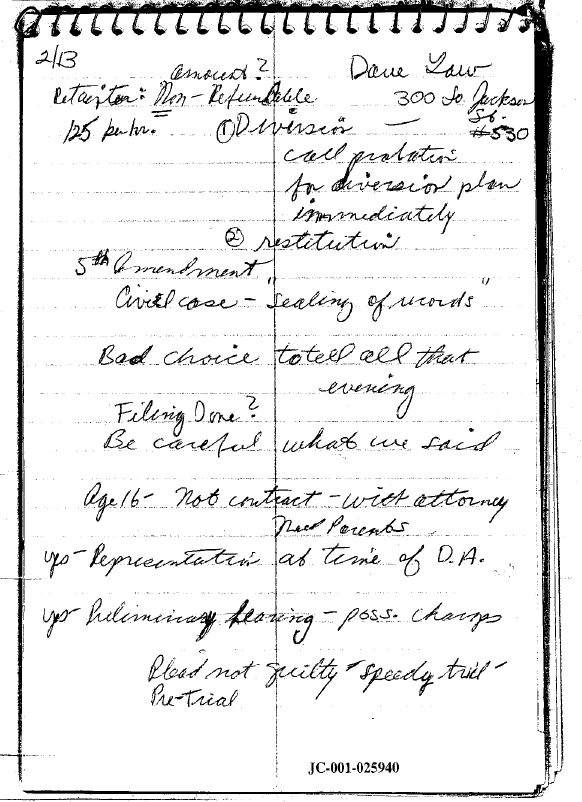 2/13
amount? Dave Law
Retainer: Non-Refundable 300 So. Jackson St.
125 per hr. ① Diversion — #530
call probation
for diversion plan
immediately
② restitution
5th Amendment
Civil case - "sealing of records"
Bad choice to tell all that
evening
Filing Done?
Be careful what we said
Age 16 - Not contract - with attorney
Need Parents
yes - Representation at time of D.A.
yes - Preliminary hearing - poss. charges
Plead not guilty - speedy trial -
Pre-Trial
JC-001-025940